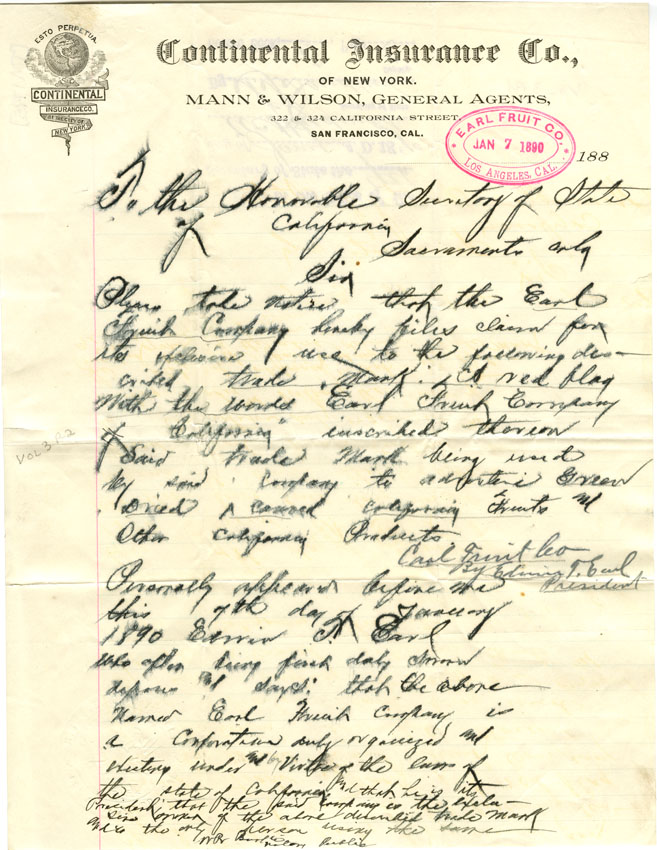 ESTO PERPETUA.
CONTINENTAL
INSURANCE CO.
OF THE CITY OF
NEW YORK
Continental Insurance Co.,
OF NEW YORK.
MANN & WILSON, GENERAL AGENTS,
322 & 324 CALIFORNIA STREET,
SAN FRANCISCO, CAL.
EARL FRUIT CO.
JAN 7 1890
LOS ANGELES, CAL.
188
To the Honorable Secretory of State
of California
Sacramento
Sir
Please take notice that the Earl
Fruit Company hereby files claim for
its exclusive use to the following des-
cribed trade Mark: A red flag
With the words Earl Fruit Company
of California" inscribed thereon
Said trade Mark being used
by said Company to advertise Green
Dried & canned California Fruits and
Other California Products
Earl Fruit Co
By Edwin T. Earl
President
Vol 3. P. 2
Personally appeared before me
this 7th day of January
1890 Edwin T. Earl
who after being first duly sworn
deposes & says: that the above
Named Earl Fruit Company is
a Corporation duly organized and
existing under and by Virtue of the laws of
the state of California and that he is its
President that the said company is the exclu-
sive owner of the above described trade Mark
and is the only person using the same
Notary Public